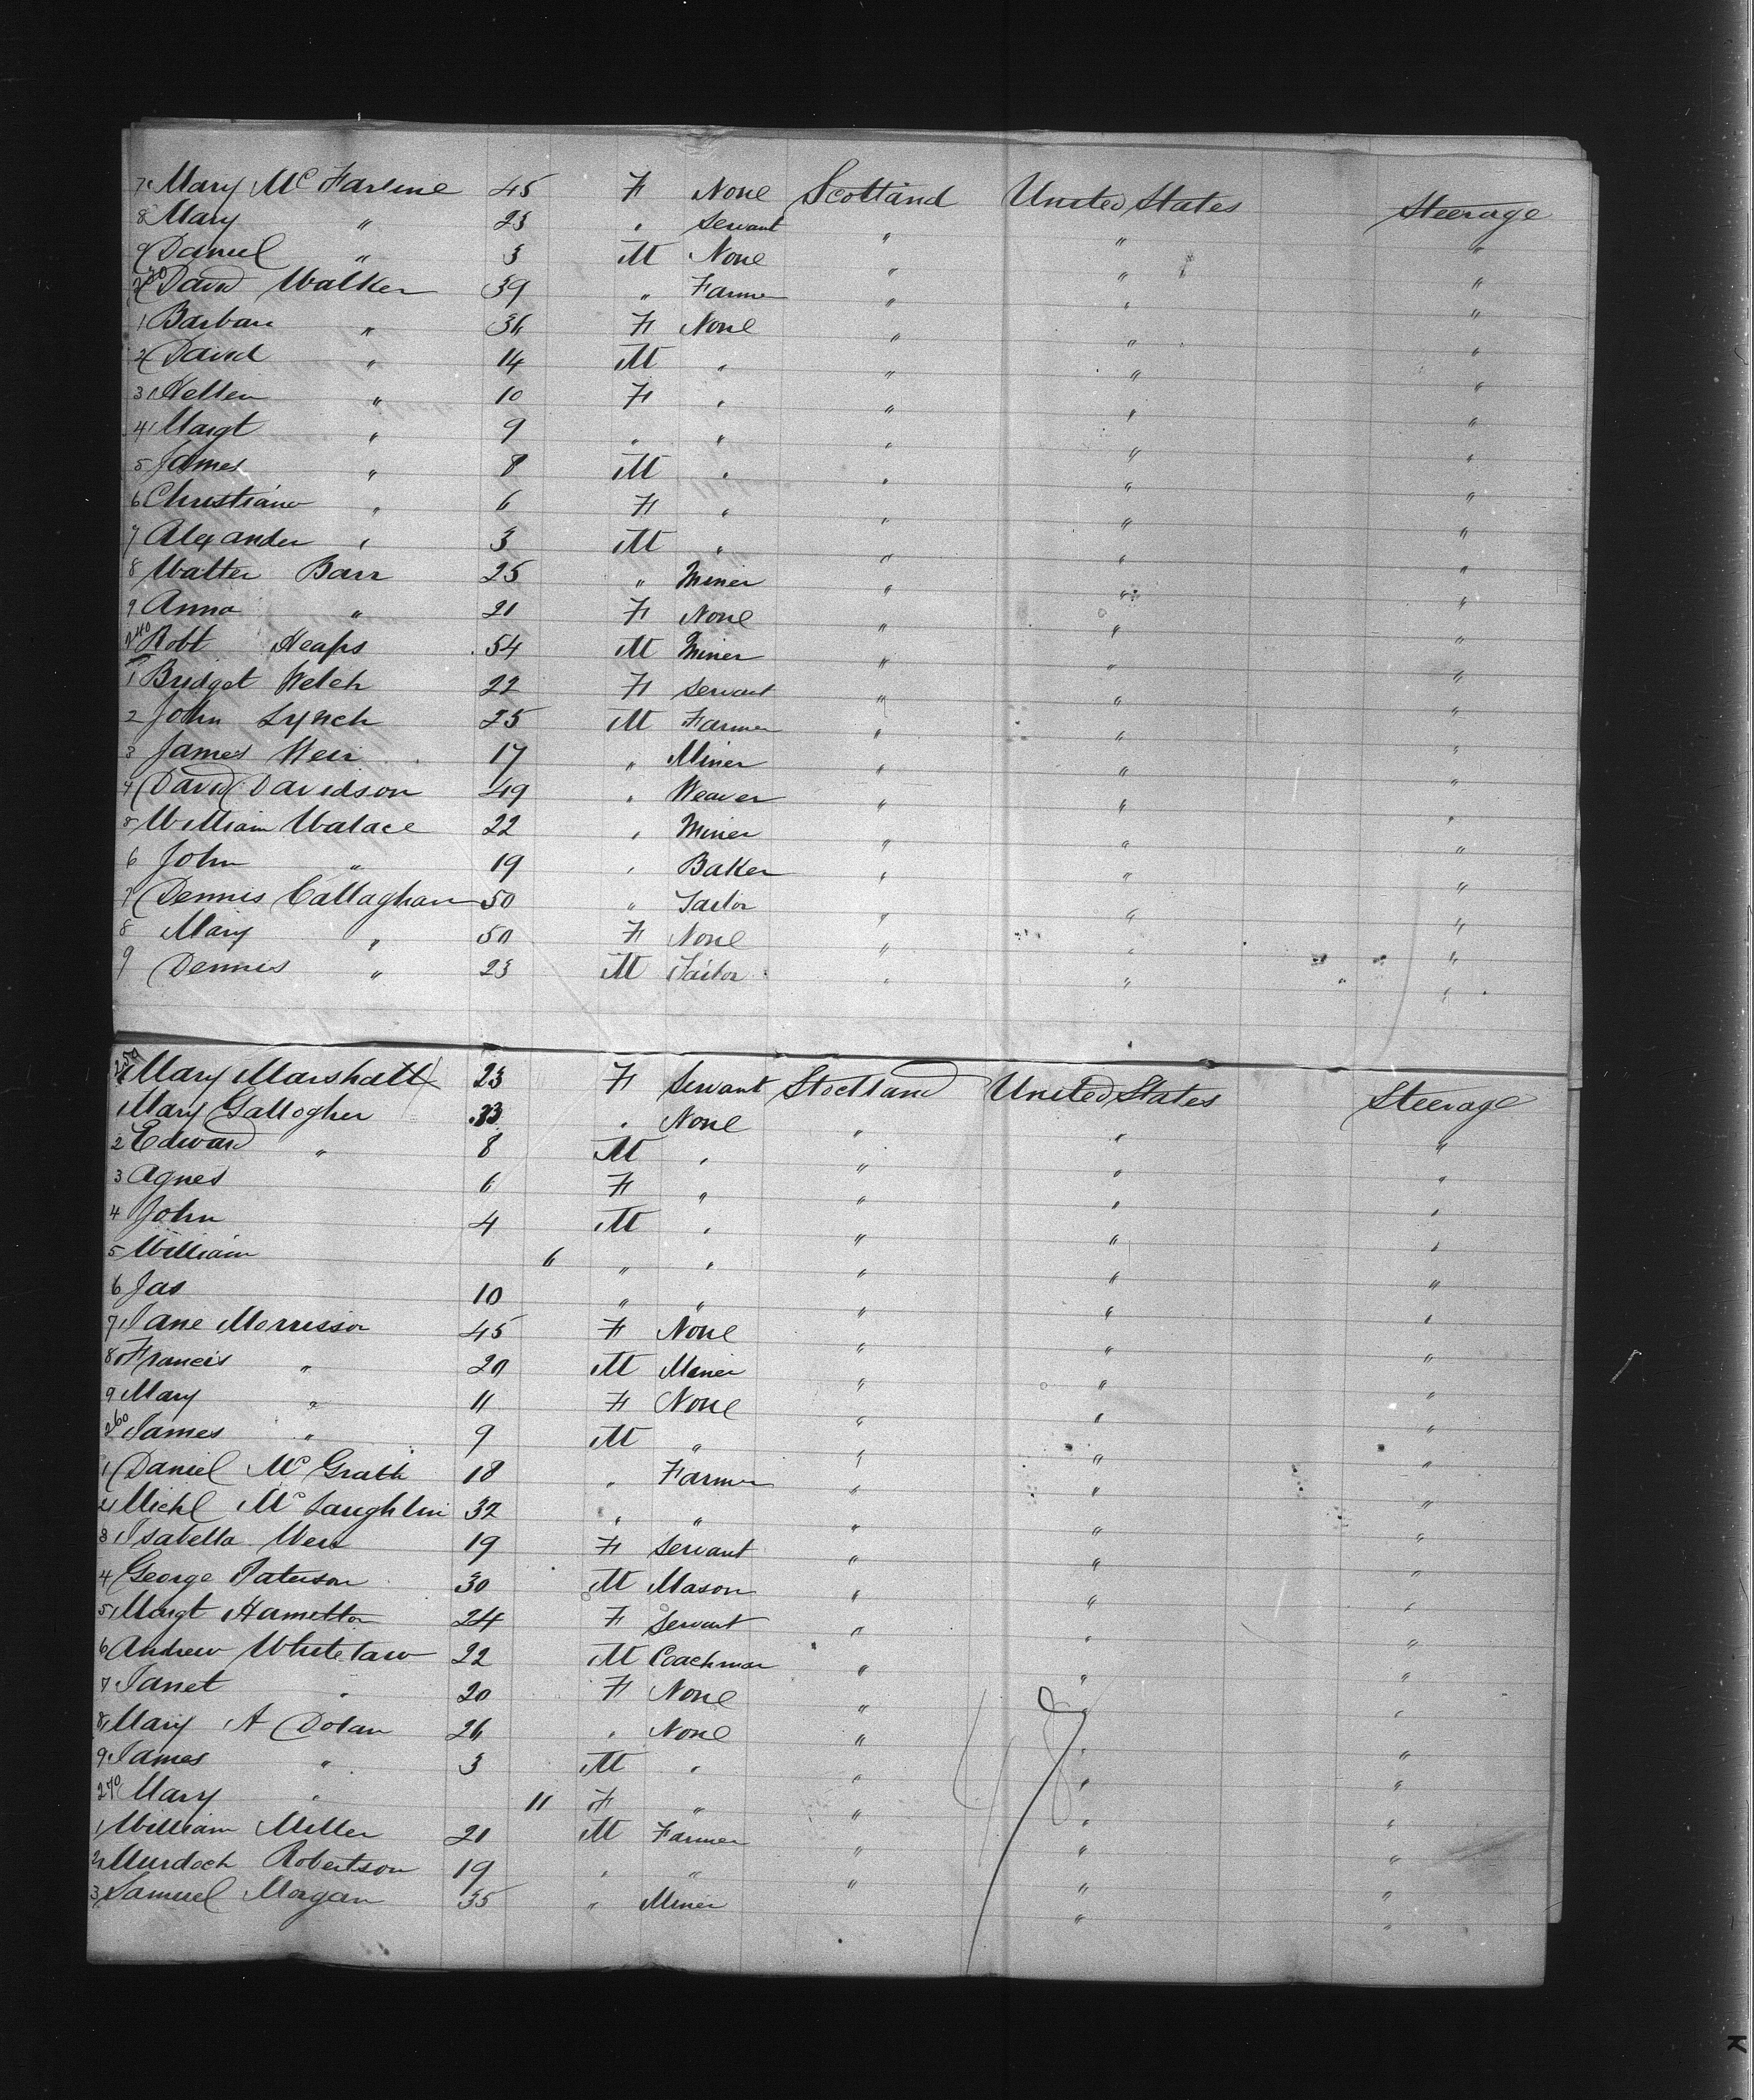 7 Mary McFarline 45 F None Scotland United States Steerage
8 Mary " 23 " Servant " " "
9 Daniel " 3 M None " " "
230 David Walker 39 " Farmer " " "
1 Barbara " 36 F None " " "
2 David " 14 M " " " "
3 Hellen " 10 F " " " "
4 Margt " 9 " " " " "
5 James " 8 M " " " "
6 Christiana " 6 F " " " "
7 Alexander " 3 M " " " "
8 Walter Barr 25 " Miner " " "
9 Anna " 21 F None " " "
240 Robt Heaps 54 M Miner " " "
1 Bridget Welch 22 F Servant " " "
2 John Lynch 25 M Farmer " " "
3 James Weir 17 " Miner " " "
4 David Davidson 49 " Weaver " " "
5 William Walace 22 " Miner " " "
6 John " 19 " Baker " " "
7 Dennis Callaghan 50 " Tailor " " "
8 Mary " 50 F None " " "
9 Dennis " 23 M Tailor " " "
250 Mary Marshall 23 F Servant Stoctland United States Steerage
1 Mary Gallogher 33 " None " " "
2 Edward " 8 M " " " "
3 Agnes 6 F " " " "
4 John 4 M " " " "
5 William 6 " " " " "
6 Jas 10 " " " " "
7 Jane Morrison 45 F None " " "
8 Francis " 20 M Miner " " "
9 Mary " 11 F None " " "
260 James " 9 M " " " "
1 Daniel McGrath 18 " Farmer " " "
2 Michl McLaughlin 32 " " " " "
3 Isabella Weir 19 F Servant " " "
4 George Paterson 30 M Mason " " "
5 Margt Hamilton 24 F Servant " " "
6 Andrew Whitelaw 22 M Coachman " " "
7 Janet " 20 F None " " "
8 Mary A Dolan 26 " None " " "
9 James " 3 M " " " "
270 Mary " 11 F " " " "
1 William Miller 21 M Farmer " " "
2 Murdoch Robertson 19 " " " " "
3 Samuel Morgan 35 " Miner " "